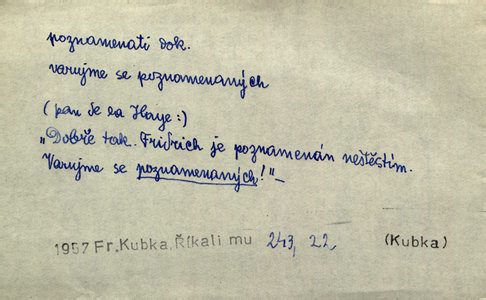 poznamenati dok.
varujme se poznamenaných
(pan de la Haye:)
„Dobře tak. Fridrich je poznamenán neštěstím.
Varujme se poznamenaných!"_
1957 Fr.Kubka,Říkali mu 243, 22, (Kubka)